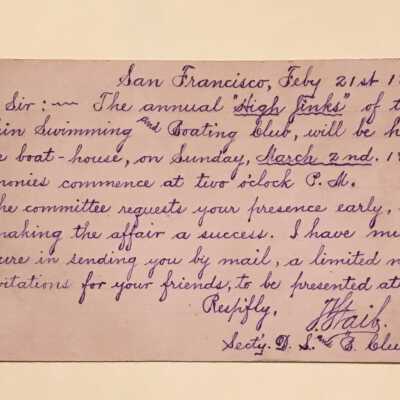 San Francisco, Feby 21st 1
Sir :~ The annual "High Jinks" of t
in Swimming and Boating Club, will be h
e boat-house, on Sunday, March 2nd. 1
monies commence at two o'clock P. M.
he committee requests your presence early,
making the affair a success. I have m
ure in sending you by mail, a limited n
vitations for your friends, to be presented at
Respf'ly,
Staib.
Sect'y. D. S. and B. Clu